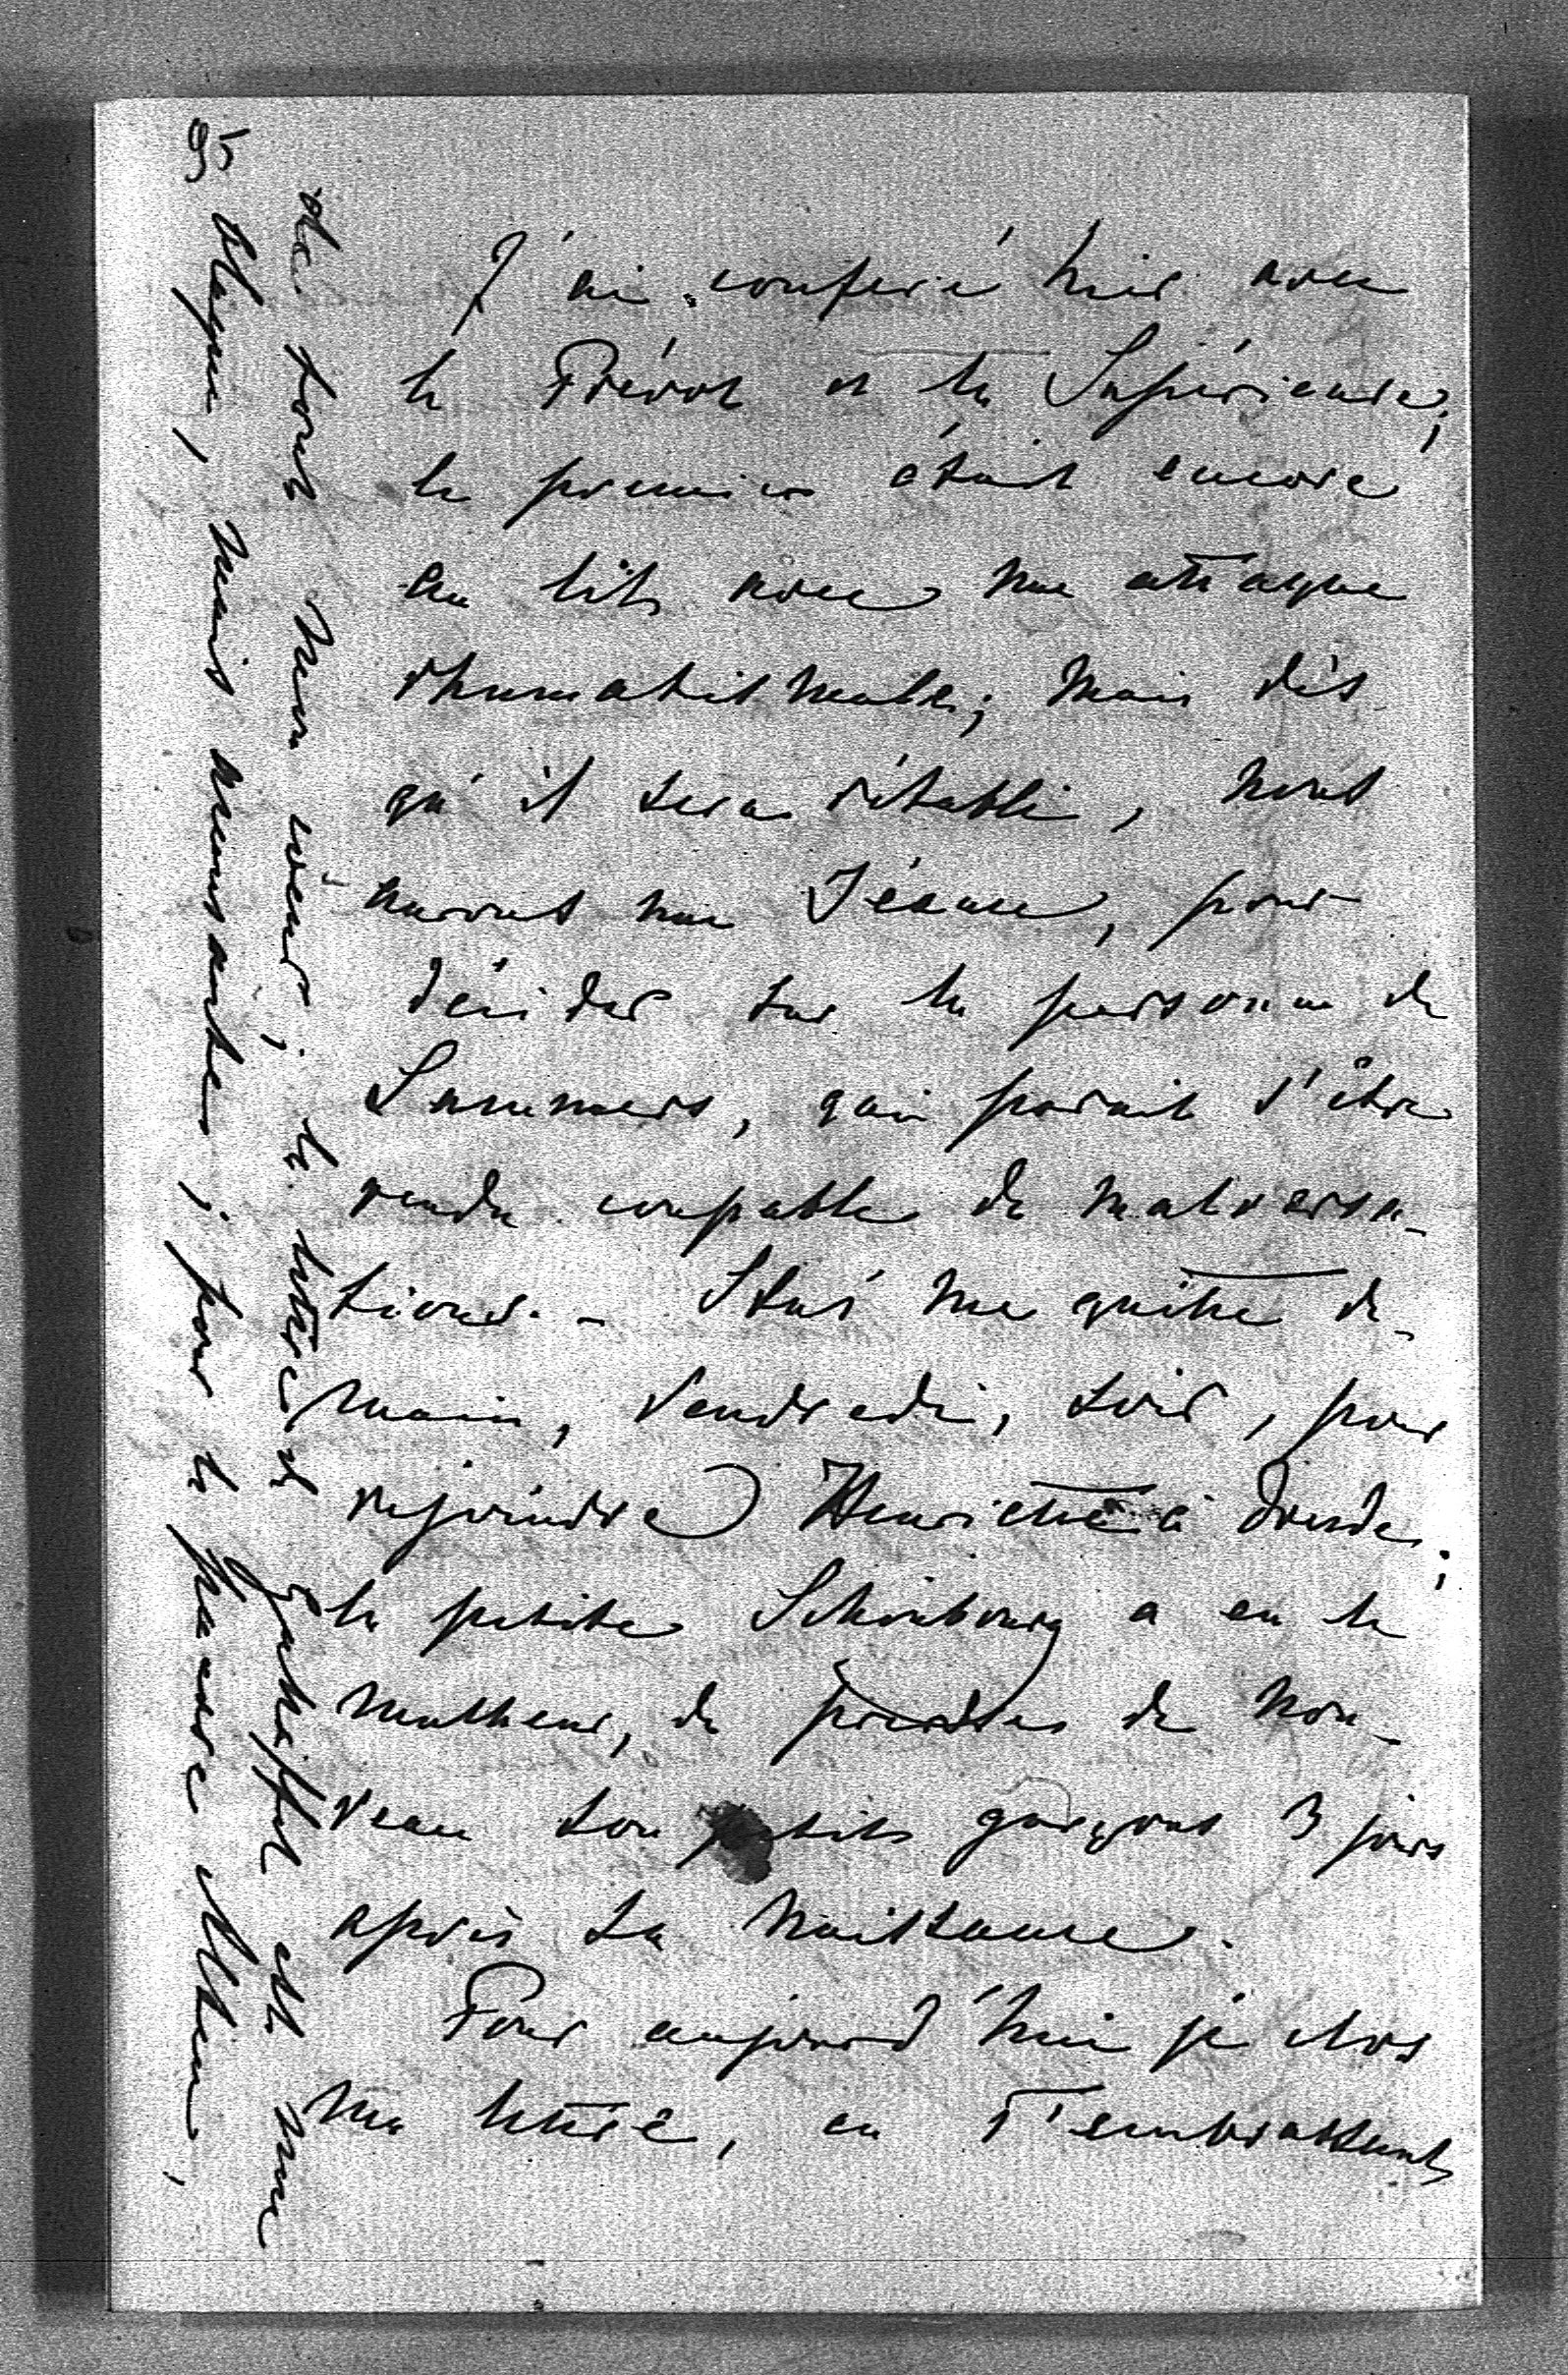 J'ai conferé hier avec
le Prévot et la Supérieure;
le premier était encore
au lit avec une attaque
rhumatismale; mais dès
qu'il sera rétabli, nous
aurons une Séance, pour
décider sur la personne de
Summers, qui parait s'être
rendu coupable de malversa-
tions. – Stas' me quitte de-
main, Vendredi, soir, pour
rejoindre Henriette à Dresde;
la petite Schönbourg a eu le
malheur, de perdre de nou-
veau son petit garçons 3 jours
après sa naissance.
Pour aujourd'hui je clos
ma lettre, en T'embrassant
de tout mon coeur; la lettre de est une
blague, mais amusante; pour le pauvre